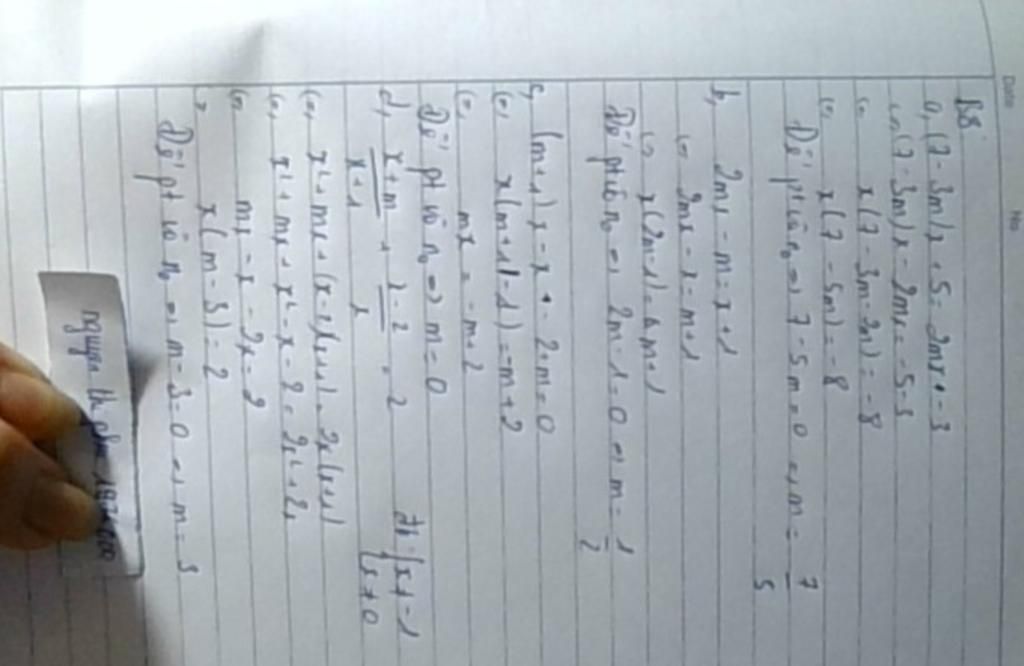 Date No
B8
a, (7 - 3m)x + 5 = 2mx - 3
(=) (7 - 3m)x - 2mx = -5-3
(=) x(7 - 3m - 2m) = -8
(=) x(7 - 5m) = -8
Để pt vô n0 => 7 - 5m = 0 => m = 7/5
b, 2mx - m = x + 1
(=) 2mx - x = m+1
(=) x(2m-1) = m+1
Để pt vô n0 => 2m-1 = 0 => m = 1/2
c, (m+1)x - x - 2+m = 0
(=) x(m+1-1) = -m+2
(=) mx = -m+2
Để pt vô n0 => m = 0
d, x+m/x+1 + x-2/x = 2 đk { x ≠ -1
x ≠ 0
(=) x² + mx + (x-2)(x+1) = 2x(x+1)
(=) x² + mx + x² - x - 2 = 2x² + 2x
(=) mx - x - 2x = 2
x(m - 3) = 2
Để pt vô n0 => m - 3 = 0 => m = 3